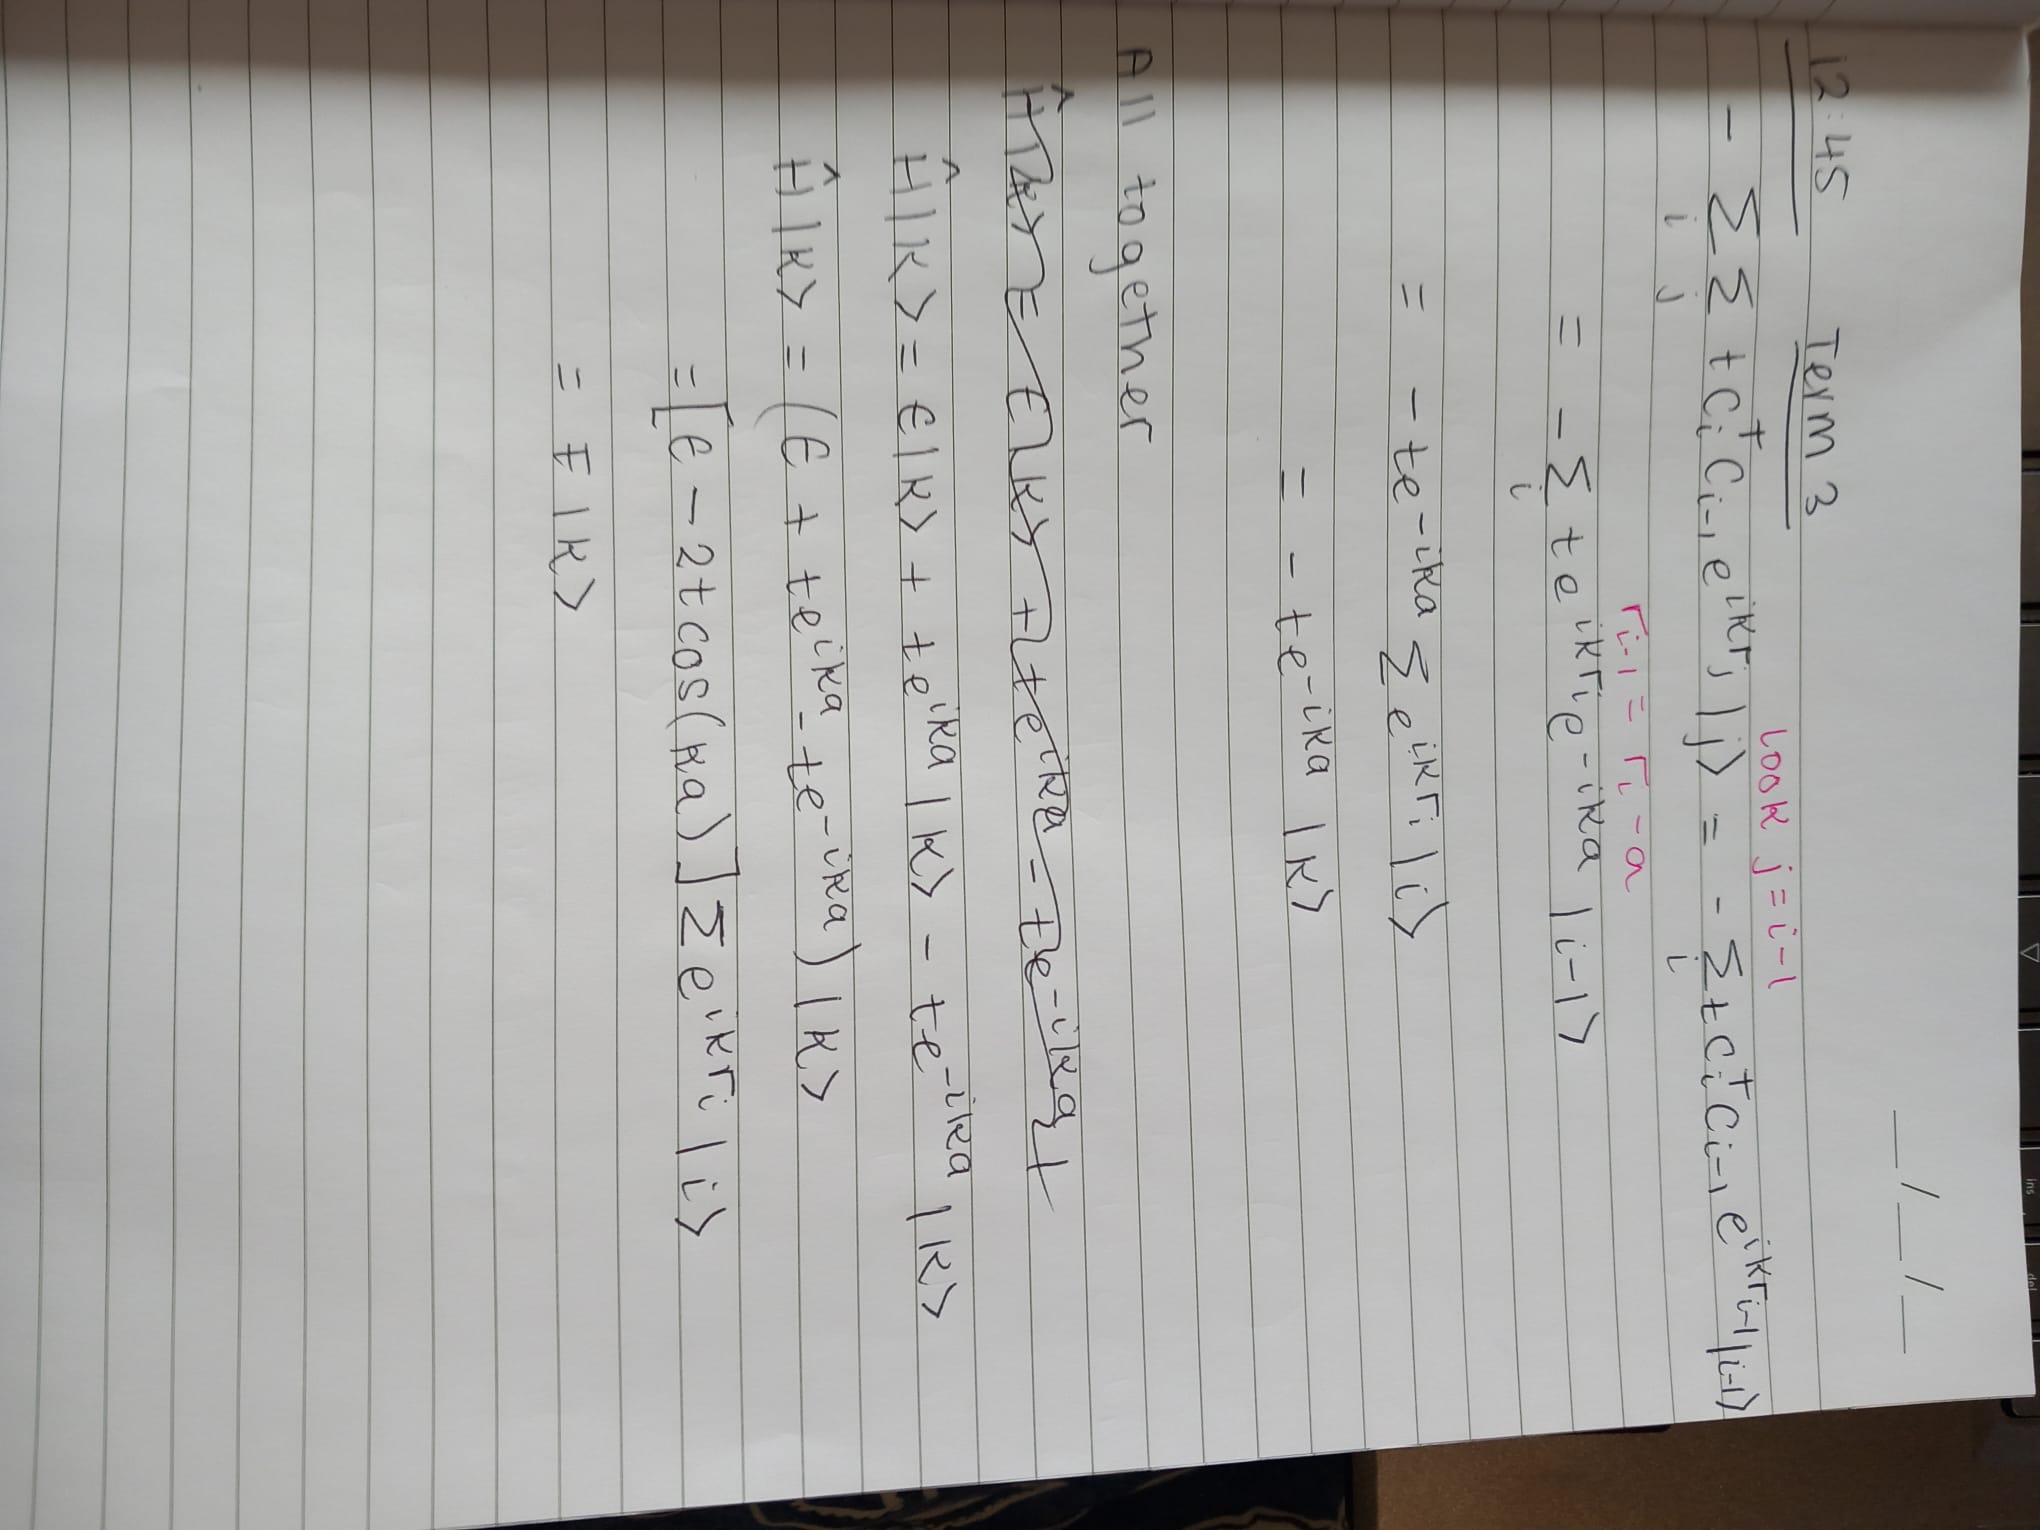 ins del
_/_/_
12:45 Term 3
Look j = i-1
- Σ_i Σ_j t c_i^† c_{i-1} e^{ikr_j} |j> = - Σ_i t c_i^† c_{i-1} e^{ikr_{i-1}} |i-1>
r_{i-1} = r_i - a
= - Σ_i t e^{ikr_i} e^{-ika} |i-1>
= - t e^{-ika} Σ e^{ikr_i} |i>
= - t e^{-ika} |k>
All together
Ĥ|k> = ϵ|k> + t e^{ika} - t e^{-ika}
Ĥ|k> = ϵ|k> + t e^{ika} |k> - t e^{-ika} |k>
Ĥ|k> = (ϵ + t e^{ika} - t e^{-ika}) |k>
= [ϵ - 2t cos(ka)] Σ e^{ikr_i} |i>
= E |k>